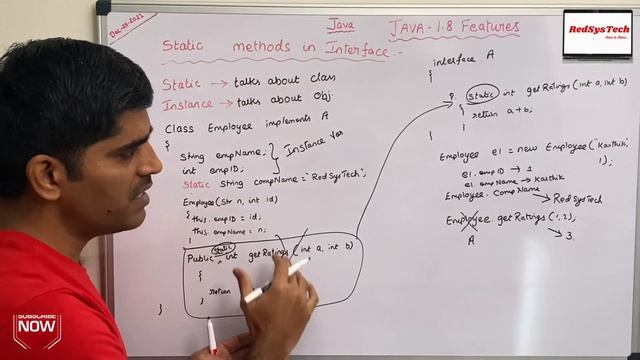 Dec-29-2021
Java
JAVA - 1.8 Features
Static methods in Interface :-
Static → talks about class
Instance → talks about obj.
Class Employee implements A
{
String empName;
int empID;
} Instance Var
Static String compName = "RedSysTech";
Employee(Str n, int id)
{ this.empID = id;
this.empName = n; }
static
Public int getRatings (int a, int b)
{
return
}
}
interface A
{
P. static int getRatings (int a, int b)
{
return a+b;
}
}
Employee e1 = new Employee("Karthik",
1);
e1.empID → 1
e1.empName → Karthik
Employee.CompName → RedSysTech
Employee.getRatings (1,2);
A
→ 3
RedSysTech
SUBSCRIBE
NOW